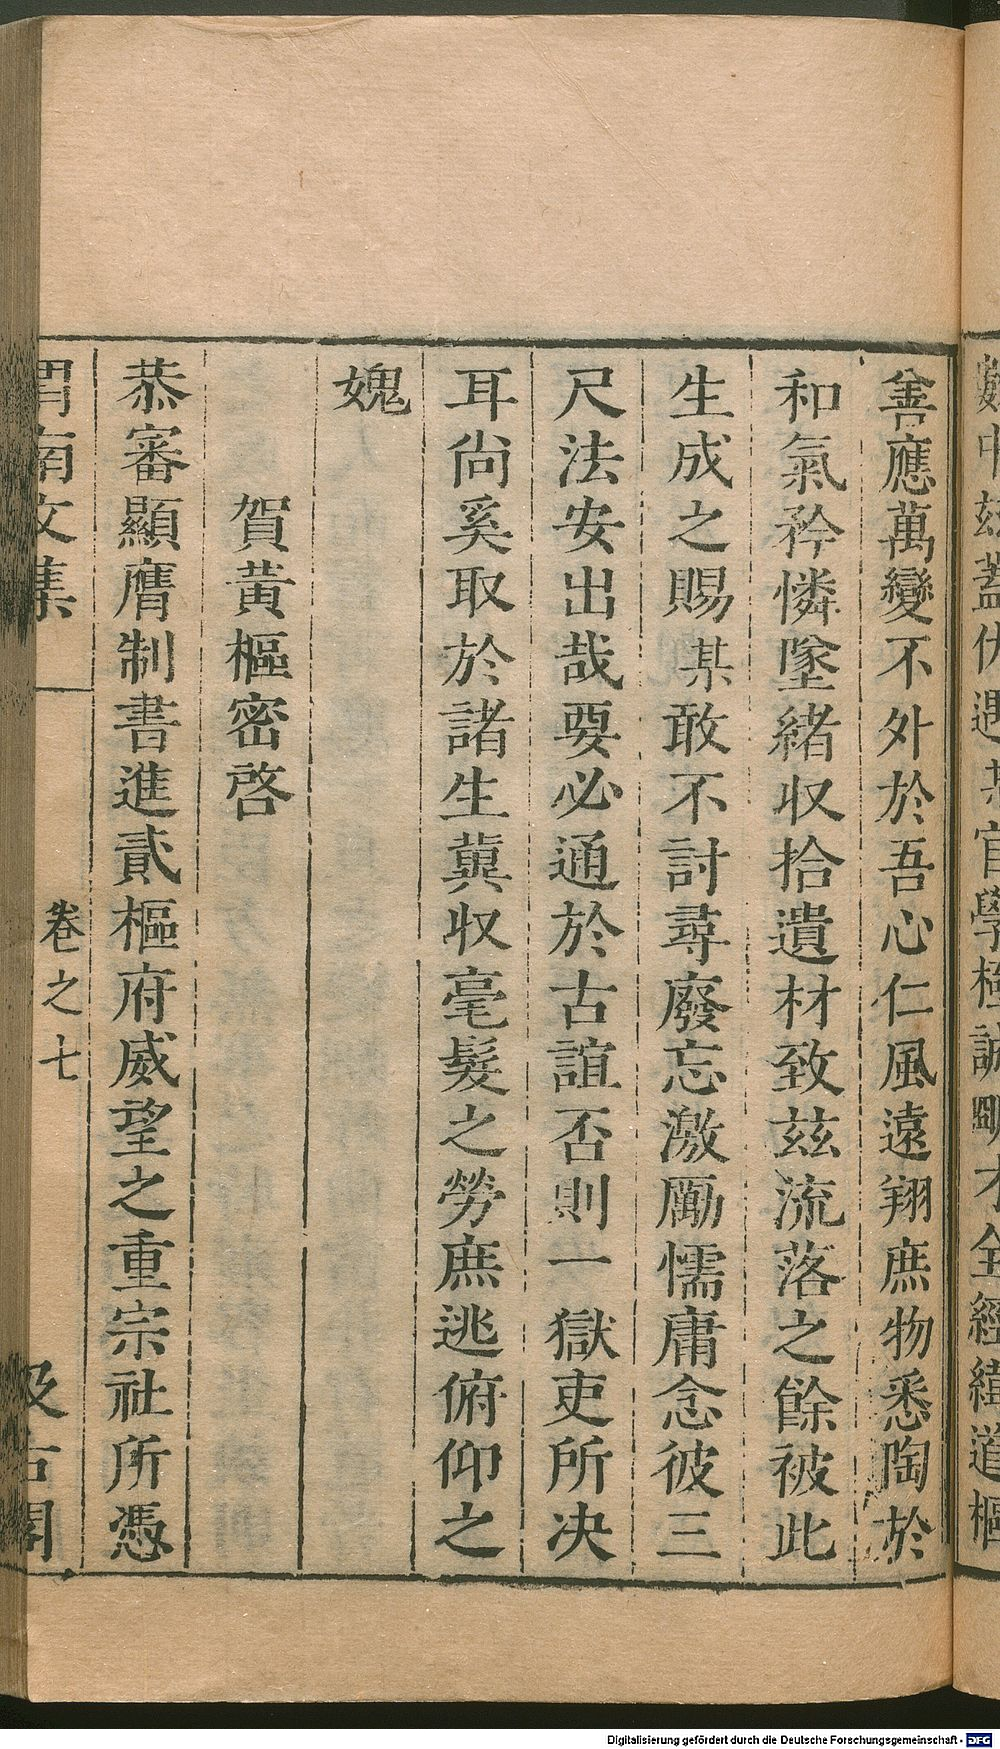 善應萬變不外於吾心仁風遠翔庶物悉陶於
和氣矜憐墜緒収拾遺材致兹流落之餘被此
生成之賜某敢不討尋廢忘激勵懦庸念彼三
尺法安出哉要必通於古誼否則一獄吏所决
耳尚奚取於諸生冀収毫髮之勞庶逃俯仰之
媿
賀黃樞密啓
恭審顯膺制書進貳樞府威望之重宗社所憑
渭南文集 卷之七 汲古閣
Digitalisierung gefördert durch die Deutsche Forschungsgemeinschaft - DFG